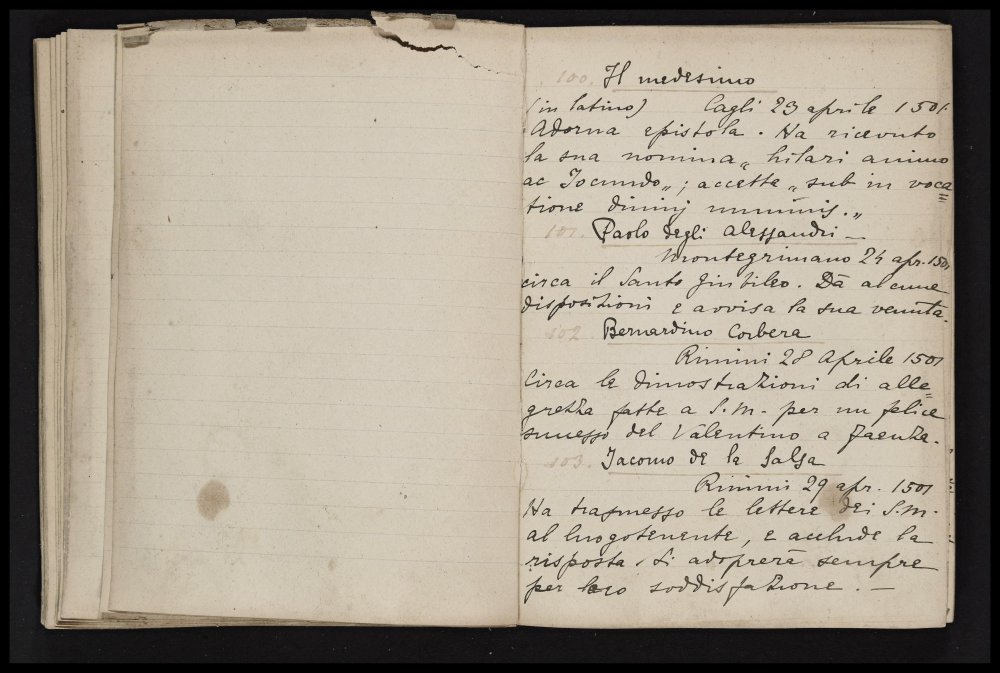 100. Il medesimo
(in latino) Cagli 23 aprile 1501
Adorna epistola. Ha ricevuto
la sua nomina „ hilari animo
ac Jocundo „; accetta „ sub in voca=
tione divinj numinis. „
101. Paolo degli Alessandri —
Montegrimano 24 apr. 1501
circa il Santo Giubileo. Dà alcune
disposizioni e avvisa la sua venuta.
102 Bernardino Corbera
Rimini 28 Aprile 1501
Circa le dimostrazioni di alle=
grezza fatte a S. M. per un felice
successo del Valentino a Faenza.
103. Jacomo de la Salsa
Rimini 29 apr. 1501
Ha trasmesso le lettere dei S. M.
al luogotenente, e acclude la
risposta. Si adoprerà sempre
per loro soddisfazione. —